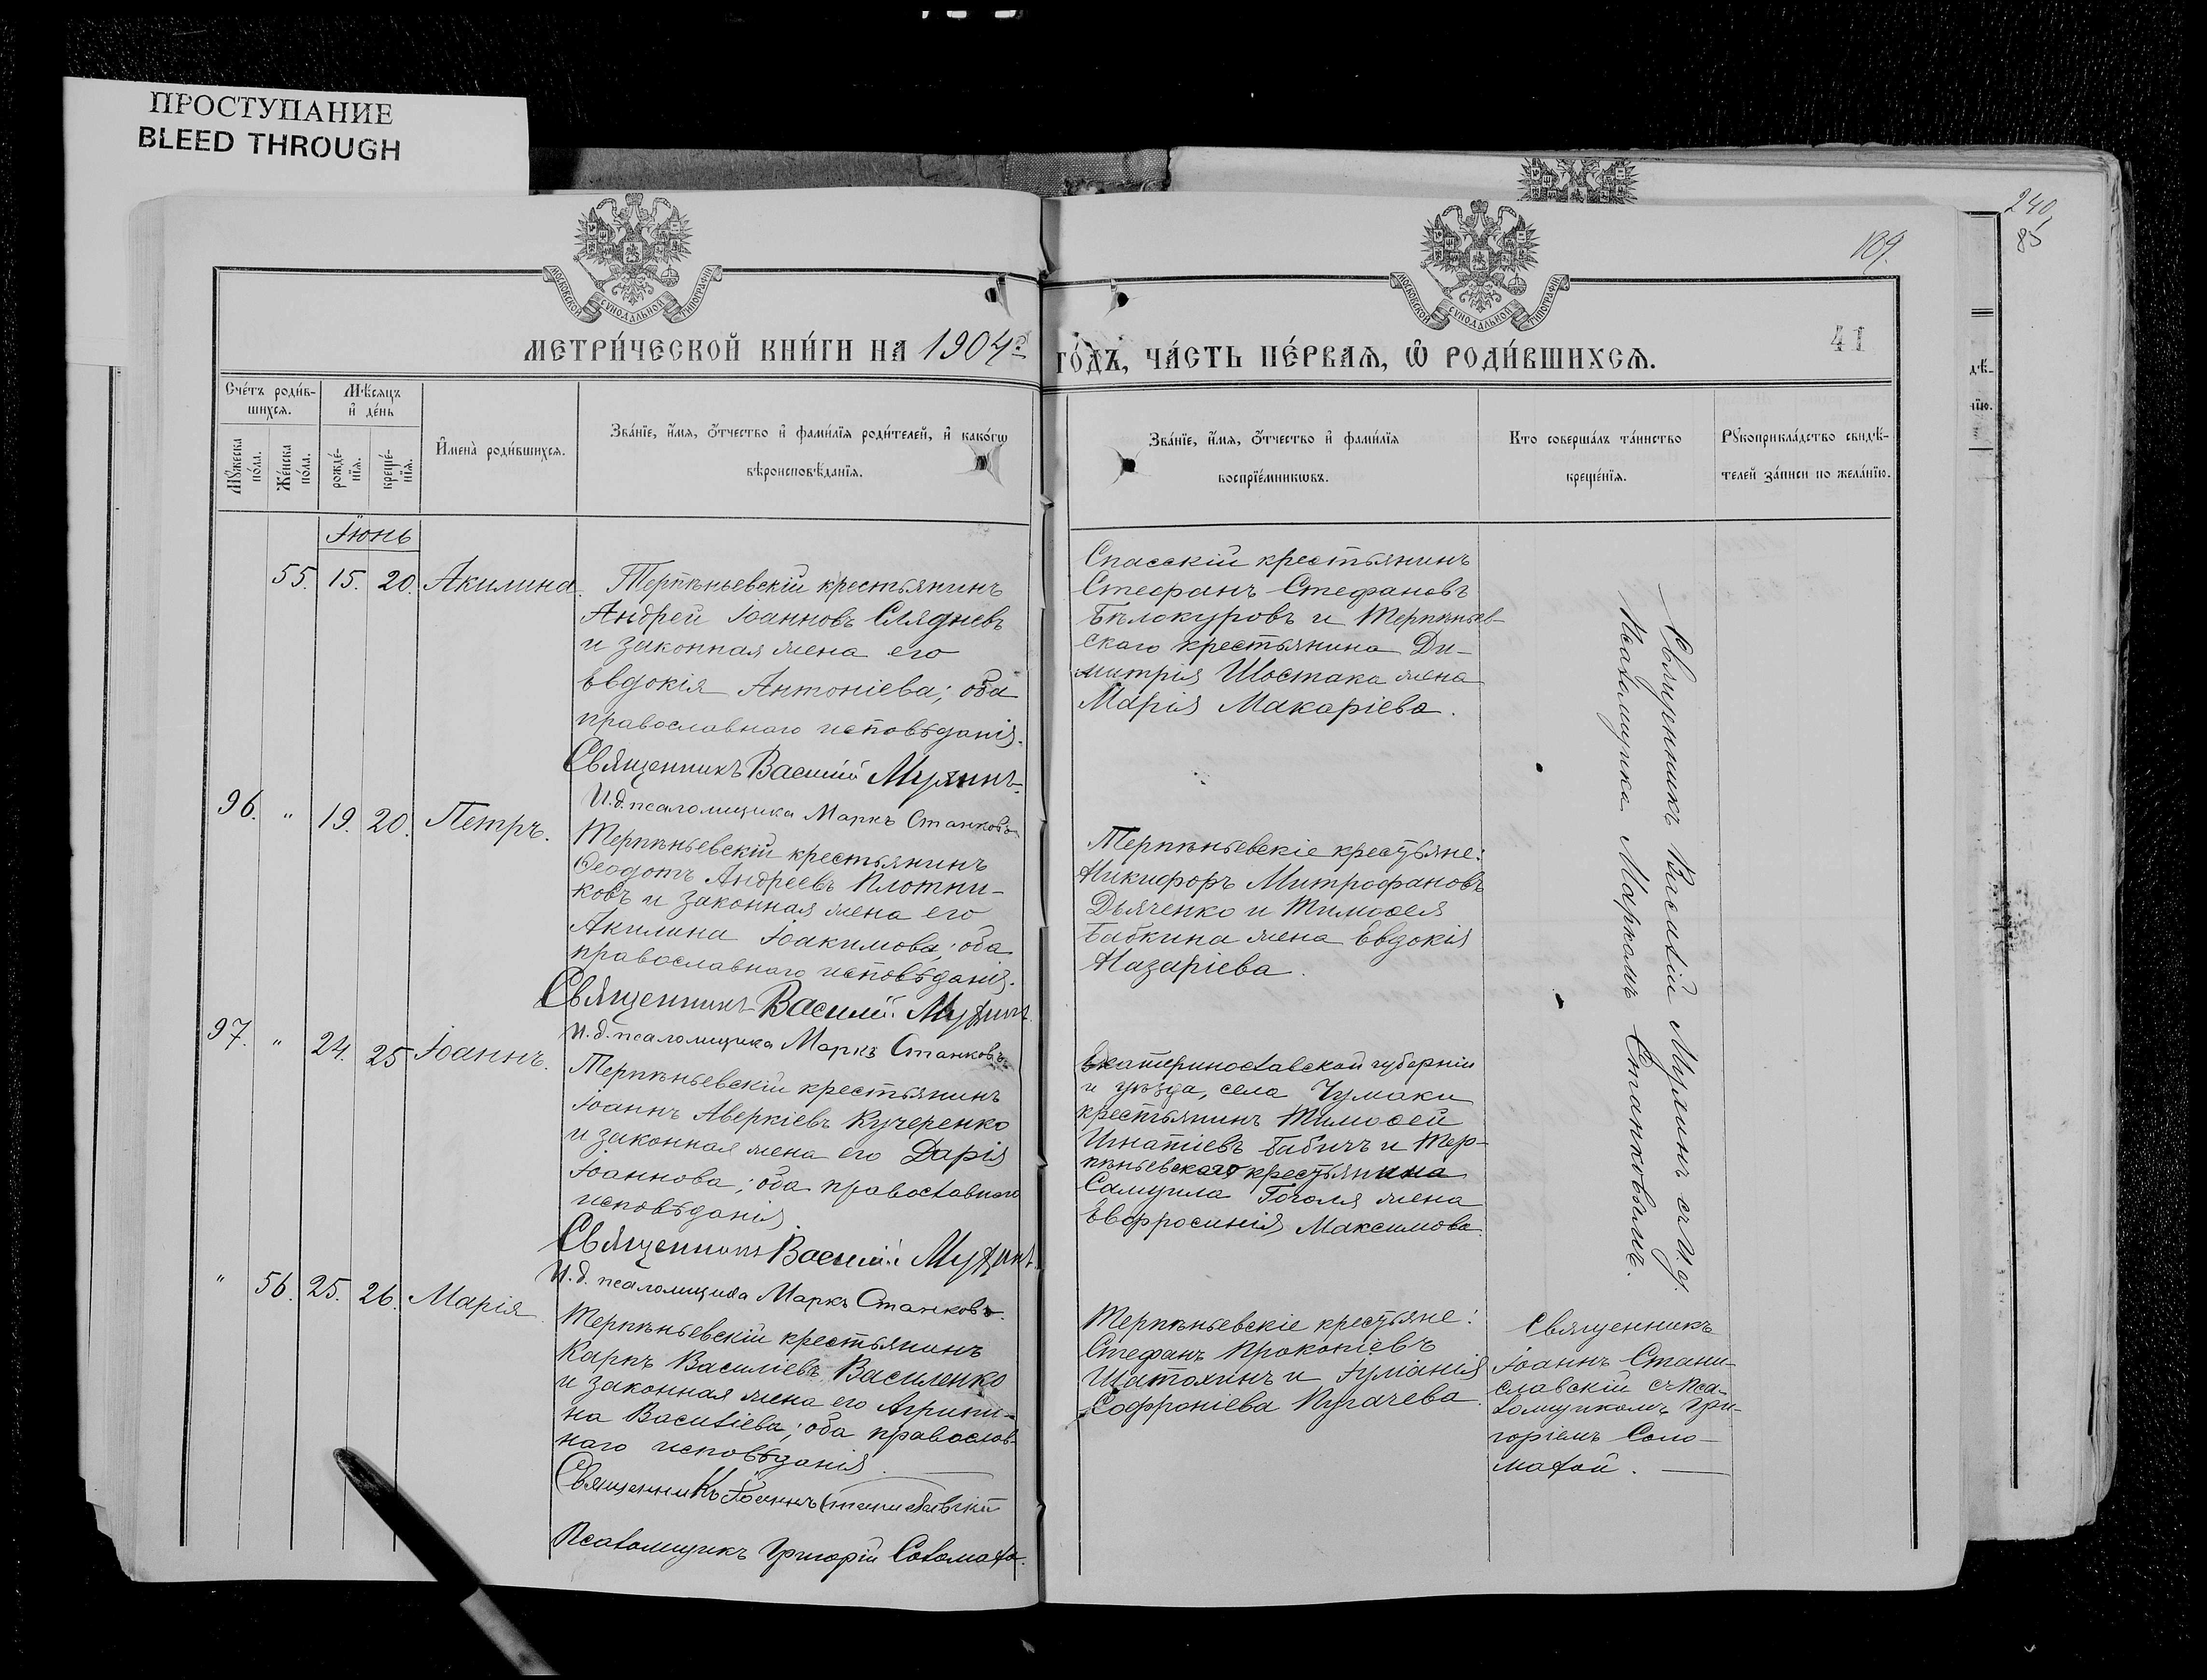 ПРОСТУПАНИЕ
BLEED THROUGH
240
85
109.
41
МОСКОВСКОЙ СѴНОДАЛЬНОЙ ТИПОГРАФІИ
МОСКОВСКОЙ СѴНОДАЛЬНОЙ ТИПОГРАФІИ
МЕТРИ́ЧЕСКОЙ КНИ́ГИ НА 1904 г҃ ГО́ДЪ, ЧА́СТЬ ПЕ́РВАѦ, Ѿ РОДИ́ВШИХСѦ.
Сче́тъ роди́в-
шихся.
Мѣ́сяцъ
и҆ де́нь
Мꙋ́жеска по́ла.
Же́нска по́ла.
рожде́-
нїя.
креще́-
нїя.
И҆мена̀ роди́вшихся.
Зва́нїе, и҆́мя, ѻ҆́тчество и҆ фами́лїя роди́телей, и҆ како́гѡ
вѣроисповѣ́данїя.
Зва́нїе, и҆́мя, ѻ҆́тчество и҆ фами́лїя
воспрїе́мникѡвъ.
Кто соверша́лъ та́инство
креще́нїя.
Рꙋкоприкла́дство свидѣ́-
телей за́писи по жела́нїю.
Іюнь
55. 15. 20. Акилина.
Терпѣньевскій крестьянинъ
Андрей Іоанновъ Слядневъ
и законная жена его
Евдокія Антоніева; оба
православнаго исповѣданія.
Священникъ Василій Мужинъ
И.д. псаломщика Маркъ Станковъ
Спасскій крестьянинъ
Стефанъ Стефановъ
Бѣлокуровъ и Терпѣньев-
скаго крестьянина Ди-
митрія Шостака жена
Марія Макаріева.
96. " 19. 20. Петръ.
Терпѣньевскій крестьянинъ
Ѳеодотъ Андреевъ Плотни-
ковъ и законная жена его
Акилина Іоакимова; оба
православнаго исповѣданія.
Священникъ Василій Мужинъ
И.д. псаломщика Маркъ Станковъ
Терпѣньевскіе крестьяне:
Никифоръ Митрофановъ
Дьяченко и Тимоѳея
Бабкина жена Евдокія
Назаріева.
97. " 24. 25 Іоаннъ.
Терпѣньевскій крестьянинъ
Іоаннъ Аверкіевъ Кучеренко
и законная жена его Дарія
Іоаннова; оба православнаго
исповѣданія.
Священникъ Василій Мужинъ
И.д. псаломщика Маркъ Станковъ.
Екатеринославской губерніи
и уѣзда, села Чумаки
крестьянинъ Тимоѳей
Игнатіевъ Бабичъ и Тер-
пѣньевскаго крестьянина
Самуила Гоголя жена
Евфросинія Максимова.
Священникъ Василій Мужинъ съ И.д.
Псаломщика Маркомъ Станковымъ.
" 56. 25. 26. Марія.
Терпѣньевскій крестьянинъ
Карпъ Василіевъ Василенко
и законная жена его Агрипи-
на Василіева; оба православ-
наго исповѣданія.
Священникъ Іоаннъ Станиславскій
Псаломщикъ Григорій Соломаха.
Терпѣньевскіе крестьяне:
Стефанъ Прокопіевъ
Шатохинъ и Іуліанія
Софроніева Пугачева.
Священникъ
Іоаннъ Стани-
славскій съ Пса-
ломщикомъ Гри-
горіемъ Соло-
махой.